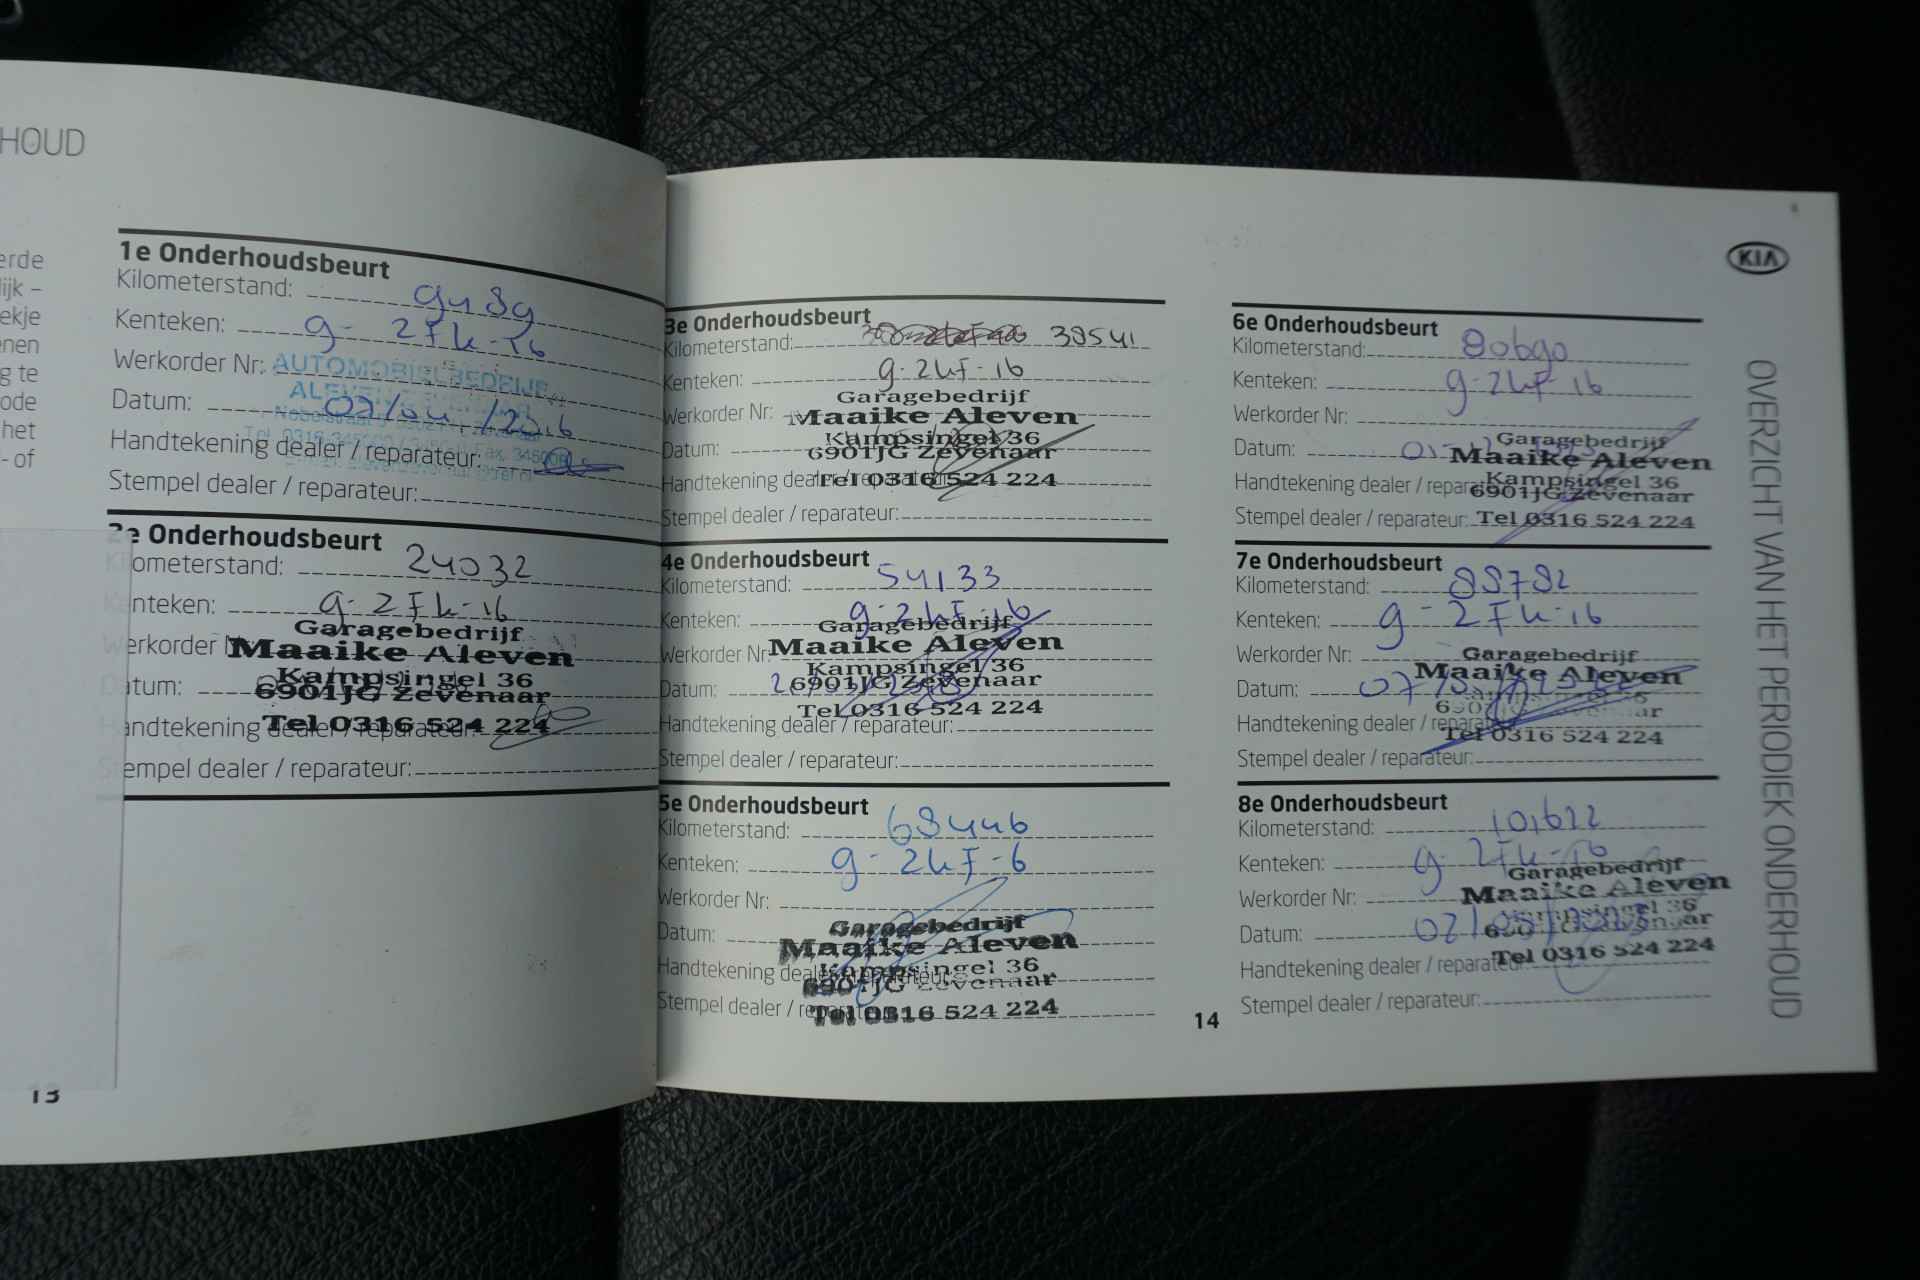 HOUD
erde
lijk –
ekje
enen
g te
ode
het
- of
13
1e Onderhoudsbeurt
Kilometerstand:
Kenteken:
Werkorder Nr: AUTOMOBIELBEDRIJF
Datum:
Handtekening dealer / reparateur:
Stempel dealer / reparateur:
2e Onderhoudsbeurt
ometerstand: 24032
enteken: g-2FK-16
Garagebedrijf
erkorder Maaike Aleven
Kampsingel 36
Datum: 6901JG Zevenaar
Handtekening dealer / reparateur: Tel 0316 524 224
tempel dealer / reparateur:
3e Onderhoudsbeurt
Kilometerstand: 38541
Kenteken: g-2kF-16
Garagebedrijf
Werkorder Nr: Maaike Aleven
Kampsingel 36
Datum: 6901JG Zevenaar
Handtekening dealer / reparateur: Tel 0316 524 224
Stempel dealer / reparateur:
4e Onderhoudsbeurt
Kilometerstand: 54133
Kenteken: g-2kF-16
Garagebedrijf
Werkorder Nr: Maaike Aleven
Kampsingel 36
Datum: 6901JG Zevenaar
Tel 0316 524 224
Handtekening dealer / reparateur:
Stempel dealer / reparateur:
5e Onderhoudsbeurt
Kilometerstand: 68446
Kenteken: g-2kF-6
Werkorder Nr:
Garagebedrijf
Datum: Maaike Aleven
Handtekening dealer / reparateur: Kampsingel 36
6901JG Zevenaar
Stempel dealer / reparateur: Tel 0316 524 224
14
KIA
6e Onderhoudsbeurt
Kilometerstand: 80690
Kenteken: g-2kF-16
Werkorder Nr:
Garagebedrijf
Datum: Maaike Aleven
Handtekening dealer / reparateur: Kampsingel 36
6901JG Zevenaar
Stempel dealer / reparateur: Tel 0316 524 224
7e Onderhoudsbeurt
Kilometerstand: 88782
Kenteken: g-2FK-16
Werkorder Nr: Garagebedrijf
Maaike Aleven
Datum:
Handtekening dealer / reparateur: Tel 0316 524 224
Stempel dealer / reparateur:
8e Onderhoudsbeurt
Kilometerstand: 101622
Kenteken: g-2FK-16
Garagebedrijf
Werkorder Nr: Maaike Aleven
Datum:
Handtekening dealer / reparateur: Tel 0316 524 224
Stempel dealer / reparateur:
OVERZICHT VAN HET PERIODIEK ONDERHOUD